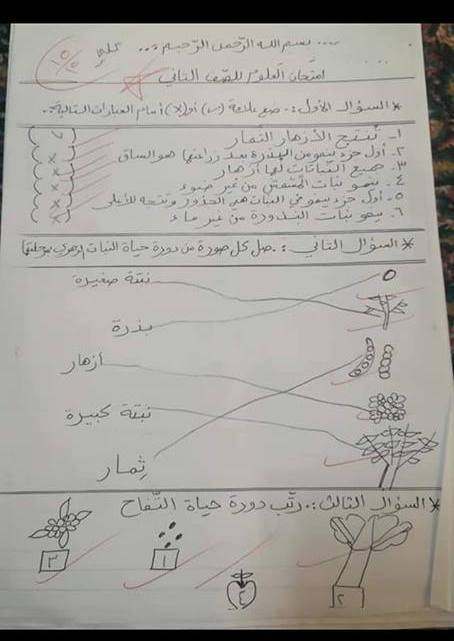 ... بسم الله الرّحمن الرّحيم ...
علي
١٥
١٥
امتحان العلوم للصّف الثاني
* السؤال الأول :. ضع علامة (✓) أو (x) أمام العبارات التالية :.
١- تُنتج الأزهار الثّمار (✓)
٢- أول جزء ينمو من البذرة بعد زراعتها هو الساق (x)
٣- جميع النّباتات لها أزهار (x)
٤- ينمو نبات المشمش من غير ضوء (x)
٥- أول جزء ينمو في النبات هي الجذور وتتجه للأعلى (x)
٦- ينمو نبات البندورة من غير ماء (x)
* السؤال الثاني :. صل كل صورة من دورة حياة النبات الزهري
نبتة صغيرة
بذرة
أزهار
نبتة كبيرة
ثِمار
* السؤال الثالث :. رتّب دورة حياة التّفاح
٣
١
٤
٢